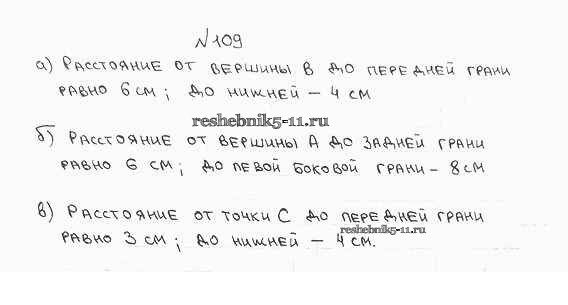 №109
а) Расстояние от вершины В до передней грани
равно 6 см; до нижней – 4 см
reshebnik5-11.ru
б) Расстояние от вершины А до задней грани
равно 6 см; до левой боковой грани – 8 см
в) Расстояние от точки С до передней грани
reshebnik5-11.ru
равно 3 см; до нижней – 4 см.